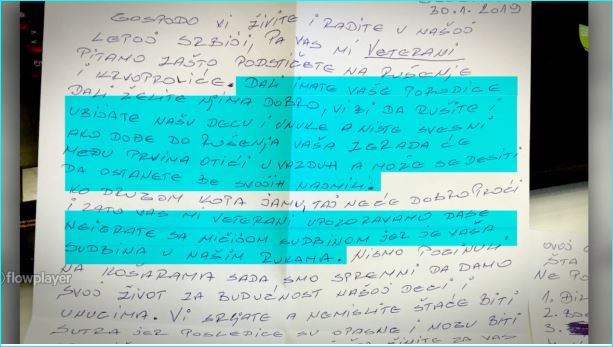 30.1.2019
GOSPODO VI ŽIVITE I RADITE U NAŠOJ
LEPOJ SRBIJI, PA VAS MI VETERANI
PITAMO ZAŠTO PODSTIČETE NA RUŠENJE
I KRVOPROLIĆE. DALI IMATE VAŠE PORODICE
DALI ŽELITE NJIMA DOBRO, VI BI DA RUŠITE I
UBIJATE NAŠU DECU I UNUKE A NISTE SVESNI
AKO DOĐE DO RUŠENJA VAŠA ZGRADA ĆE
MEĐU PRVIMA OTIĆI U VAZDUH A MOŽE SE DESITI
DA OSTANETE BEZ SVOJIH NAJMILI.
KO DRUGOM KOPA JAMU, TAJ NEĆE DOBRO PROĆI
I ZATO VAS MI VETERANI UPOZORAVAMO DA SE
NEIGRATE SA NIČIJOM SUDBINOM JER JE VAŠA
SUDBINA U NAŠIM RUKAMA. NISMO POGINULI
NA KOŠARAMA SADA SMO SPREMNI DA DAMO
SVOJ ŽIVOT ZA BUDUĆNOST NAŠOJ DECI I
UNUCIMA. VI SRLJATE A NEMISLITE ŠTA ĆE BITI
SUTRA JER POSLEDICE SU OPASNE I MOGU BITI
ZA VAS
flowplayer
OVOJ
ŠTA
NE PO
1. BIZ
2.
3.